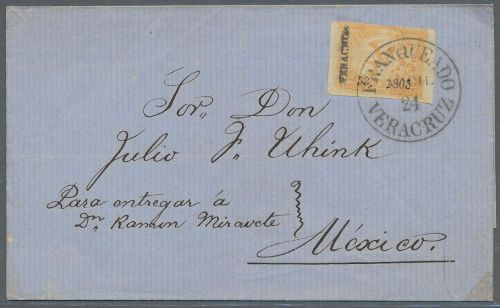 VERACRUZ
FRANQUEADO
1865
24
VERACRUZ
Sor,, Don
Julio F. Uhink
Para entregar á
Dn, Ramon Miravete
México.